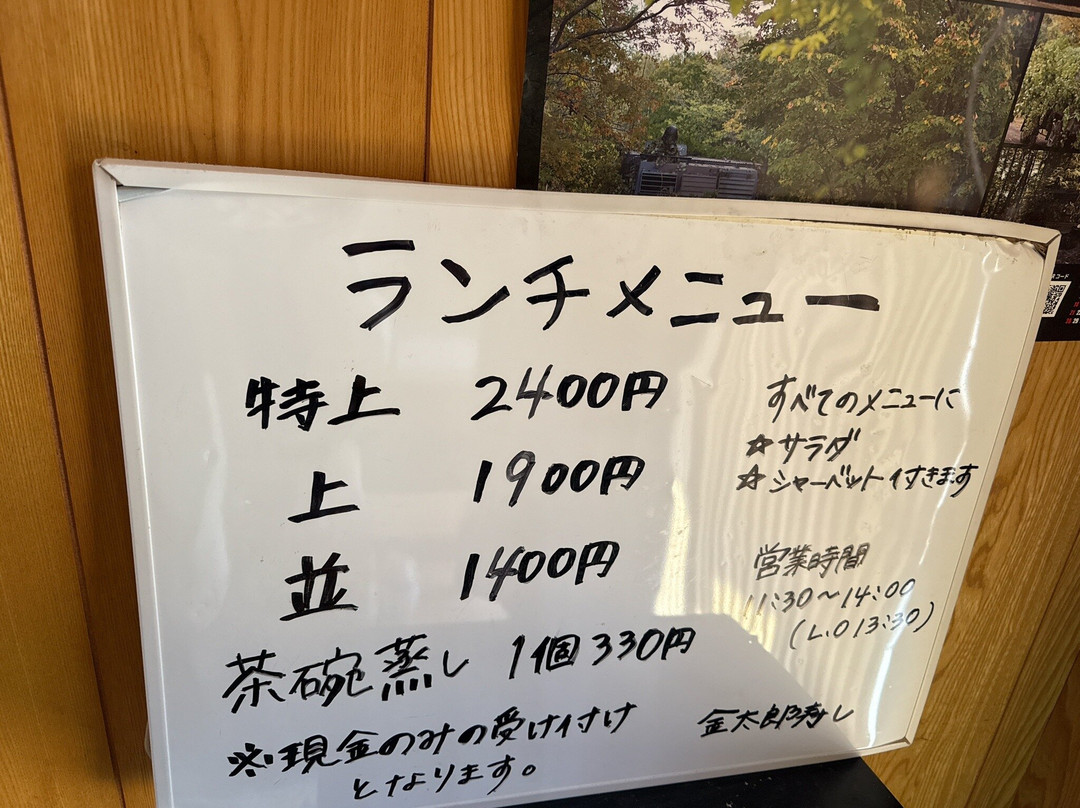 ランチメニュー
特上 2400円
上 1900円
並 1400円
茶碗蒸し 1個 330円
※現金のみの受け付け
となります。
すべてのメニューに
☆サラダ
☆シャーベット付きます
営業時間
11:30〜14:00
(L.O 13:30)
金太郎寿し